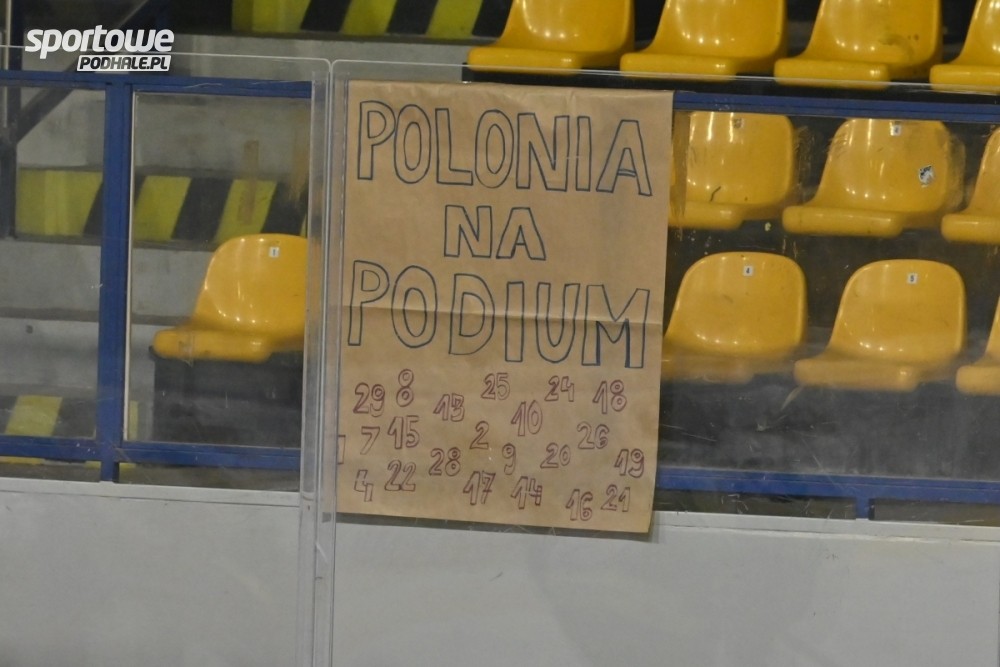 sportowe
PODHALE.PL
POLONIA
NA
PODIUM
29 8 13 25 10 24 18
1 7 15 28 2 9 20 26 19
4 22 17 14 16 21